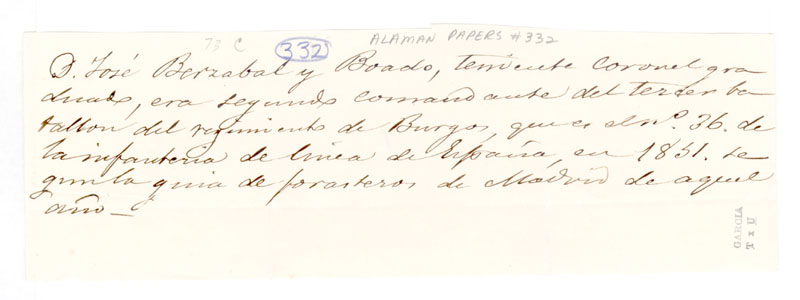 73 C
332
ALAMAN PAPERS #332
D. José Berzabal y Boado, teniente coronel gra
duado, era segundo comandante del tercer ba
tallon del regimiento de Burgos, que es el nº. 36. de
la infanteria de linea de España, en 1851. se
gun la guia de forasteros de Madrid de aquel
año_
GARCIA
TxU